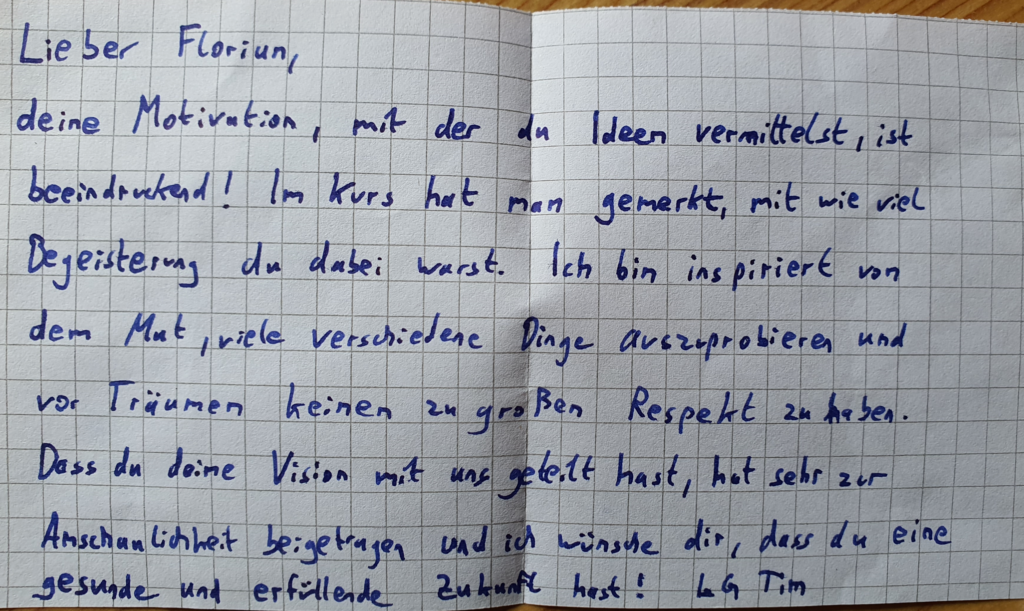 Lieber Florian,
deine Motivation, mit der du Ideen vermittelst, ist
beeindruckend! Im Kurs hat man gemerkt, mit wie viel
Begeisterung du dabei warst. Ich bin inspiriert von
dem Mut, viele verschiedene Dinge auszuprobieren und
vor Träumen keinen zu großen Respekt zu haben.
Dass du deine Vision mit uns geteilt hast, hat sehr zur
Anschaulichkeit beigetragen und ich wünsche dir, dass du eine
gesunde und erfüllende Zukunft hast! LG Tim